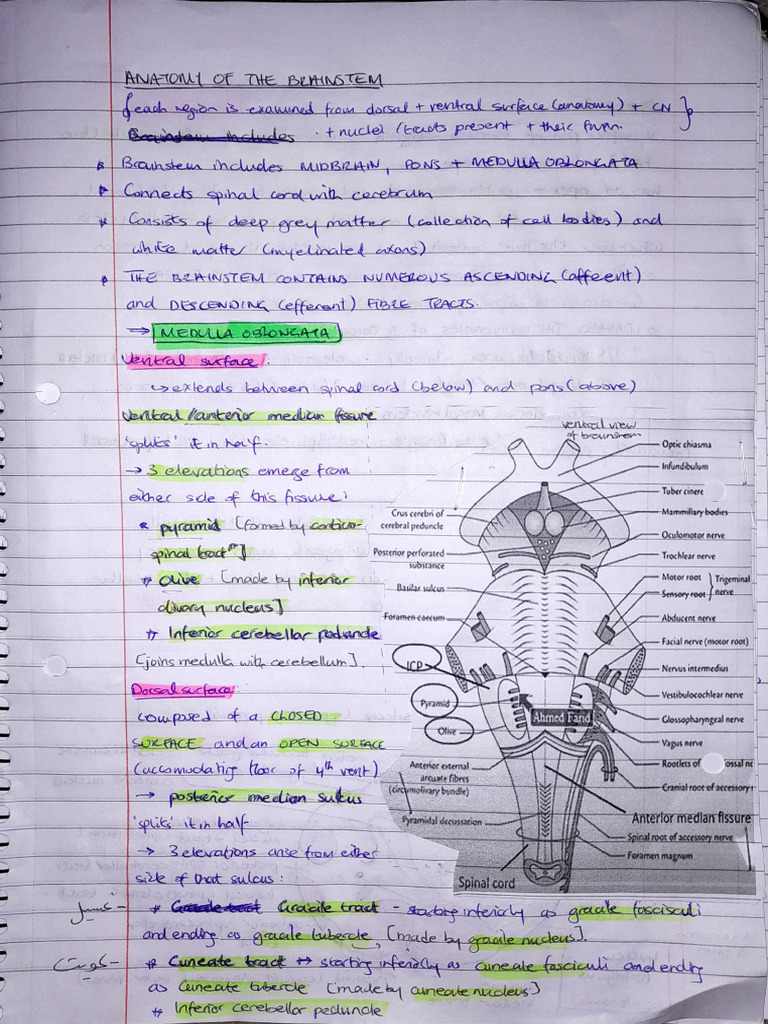 ANATOMY OF THE BRAINSTEM
{each region is examined from dorsal + ventral surface (anatomy) + CN }
Brainstem includes . + nuclei / tracts present + their func.
* Brainstem includes MIDBRAIN, PONS + MEDULLA OBLONGATA
* Connects spinal cord with cerebrum
* Consists of deep grey matter (collection of cell bodies) and
white matter (myelinated axons)
* THE BRAINSTEM CONTAINS NUMEROUS ASCENDING (afferent)
and DESCENDING (efferent) FIBRE TRACTS.
→ MEDULLA OBLONGATA
Ventral surface:
↳ extends between spinal cord (below) and pons (above)
Ventral/anterior median fissure
'splits' it in half.
→ 3 elevations emerge from
either side of this fissure:
* pyramid [formed by cortico-
spinal tract]
* Olive [made by inferior
olivary nucleus]
* Inferior cerebellar peduncle
[joins medulla with cerebellum].
Dorsal surface:
composed of a CLOSED
SURFACE and an OPEN SURFACE
(accomodating floor of 4th vent)
→ posterior median sulcus
'splits' it in half
→ 3 elevations arise from either
side of that sulcus:
ventral view
of brainstem
Optic chiasma
Infundibulum
Tuber cinere
Mammillary bodies
Oculomotor nerve
Trochlear nerve
Motor root
Sensory root
Trigeminal
nerve
Abducent nerve
Facial nerve (motor root)
Nervus intermedius
Vestibulocochlear nerve
Glossopharyngeal nerve
Vagus nerve
Rootlets of ossal ne
Cranial root of accessory
Anterior median fissure
Spinal root of accessory nerve
Foramen magnum
Crus cerebri of
cerebral peduncle
Posterior perforated
substance
Basilar sulcus
Foramen caecum
ICP
Pyramid
Olive
Ahmed Farid
Anterior external
arcuate fibres
(circumolivary bundle)
Pyramidal decussation
Spinal cord
* Gracile tract Gracile tract - starting inferiorly as gracile fasciculi
and ending as gracile tubercle, [made by gracile nucleus].
* Cuneate tract ↔ starting inferiorly as cuneate fasciculi and ending
كويت -
as Cuneate tubercle [made by cuneate nucleus]
* Inferior cerebellar peduncle